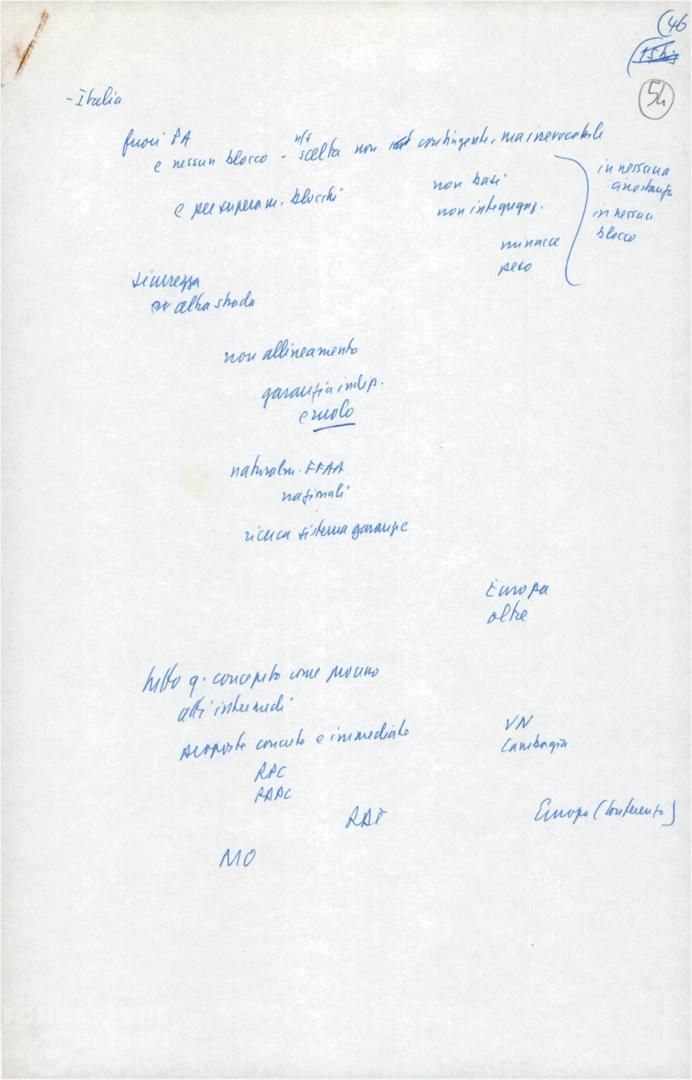 (46
54
- Italia
fuori PA
n/s
e nessun blocco - scelta non contingente, ma irrevocabile
in nessuna
circostanza
in nessun
blocco
e per superam. blocchi
non basi
non integraz.
minacce
peso
sicurezza
altra strada
non allineamento
garanzia indip.
e ruolo
naturalm. FFAA
nazionali
ricerca sistema garanzie
Europa
oltre
tutto q. concepito come processo
atti intermedi
proposte concrete e immediate
VN
Cambogia
RPC
RDT
Europa (Conferenza)
MO